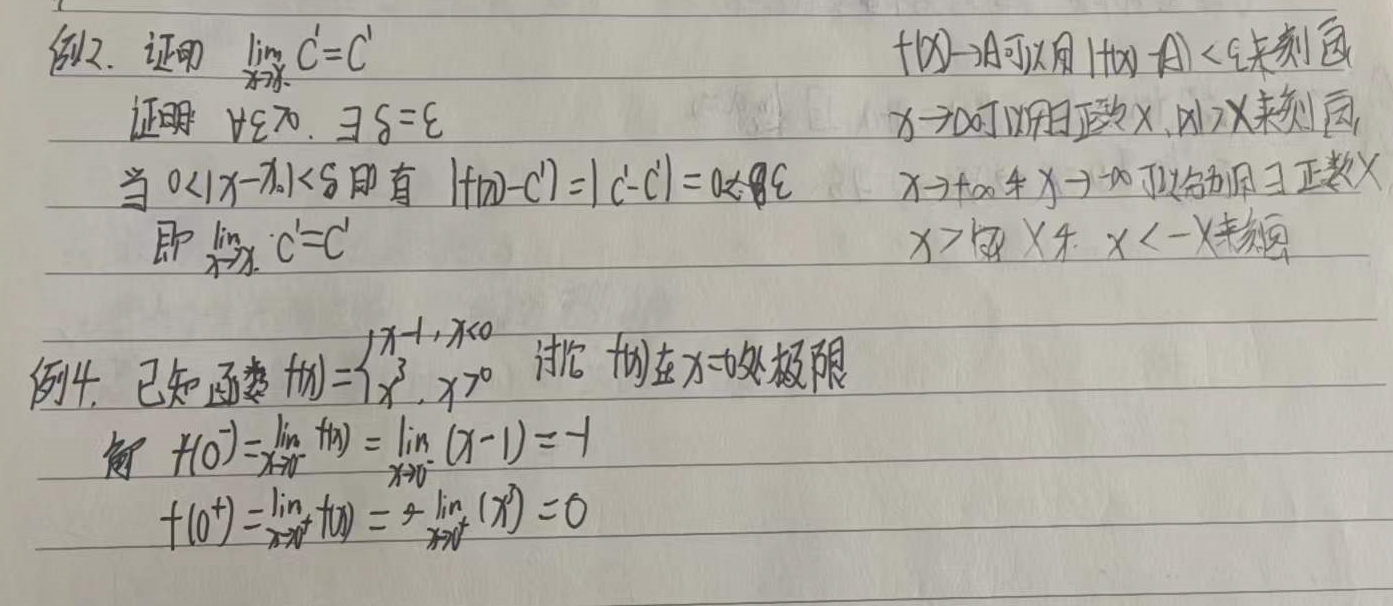 例2. 证明 lim x→x₀ C=C
证明 ∀ε>0. ∃δ=ε
当 0<|x-x₀|<δ 即有 |f(x)-C|=|C-C|=0<ε
即 lim x→x₀ C=C
f(x)→A可以用|f(x)-A|<ε来刻画
x→∞可以用∃正数X、|x|>X来刻画,
x→+∞和x→-∞可以分别用∃正数X
x>X和 x<-X来刻画
例4. 已知函数 f(x)={x-1, x<0
x³, x>0 讨论 f(x)在x=0处极限
解 f(0⁻)=lim x→0⁻ f(x)=lim x→0⁻ (x-1)=-1
f(0⁺)=lim x→0⁺ f(x)= lim x→0⁺ (x³)=0